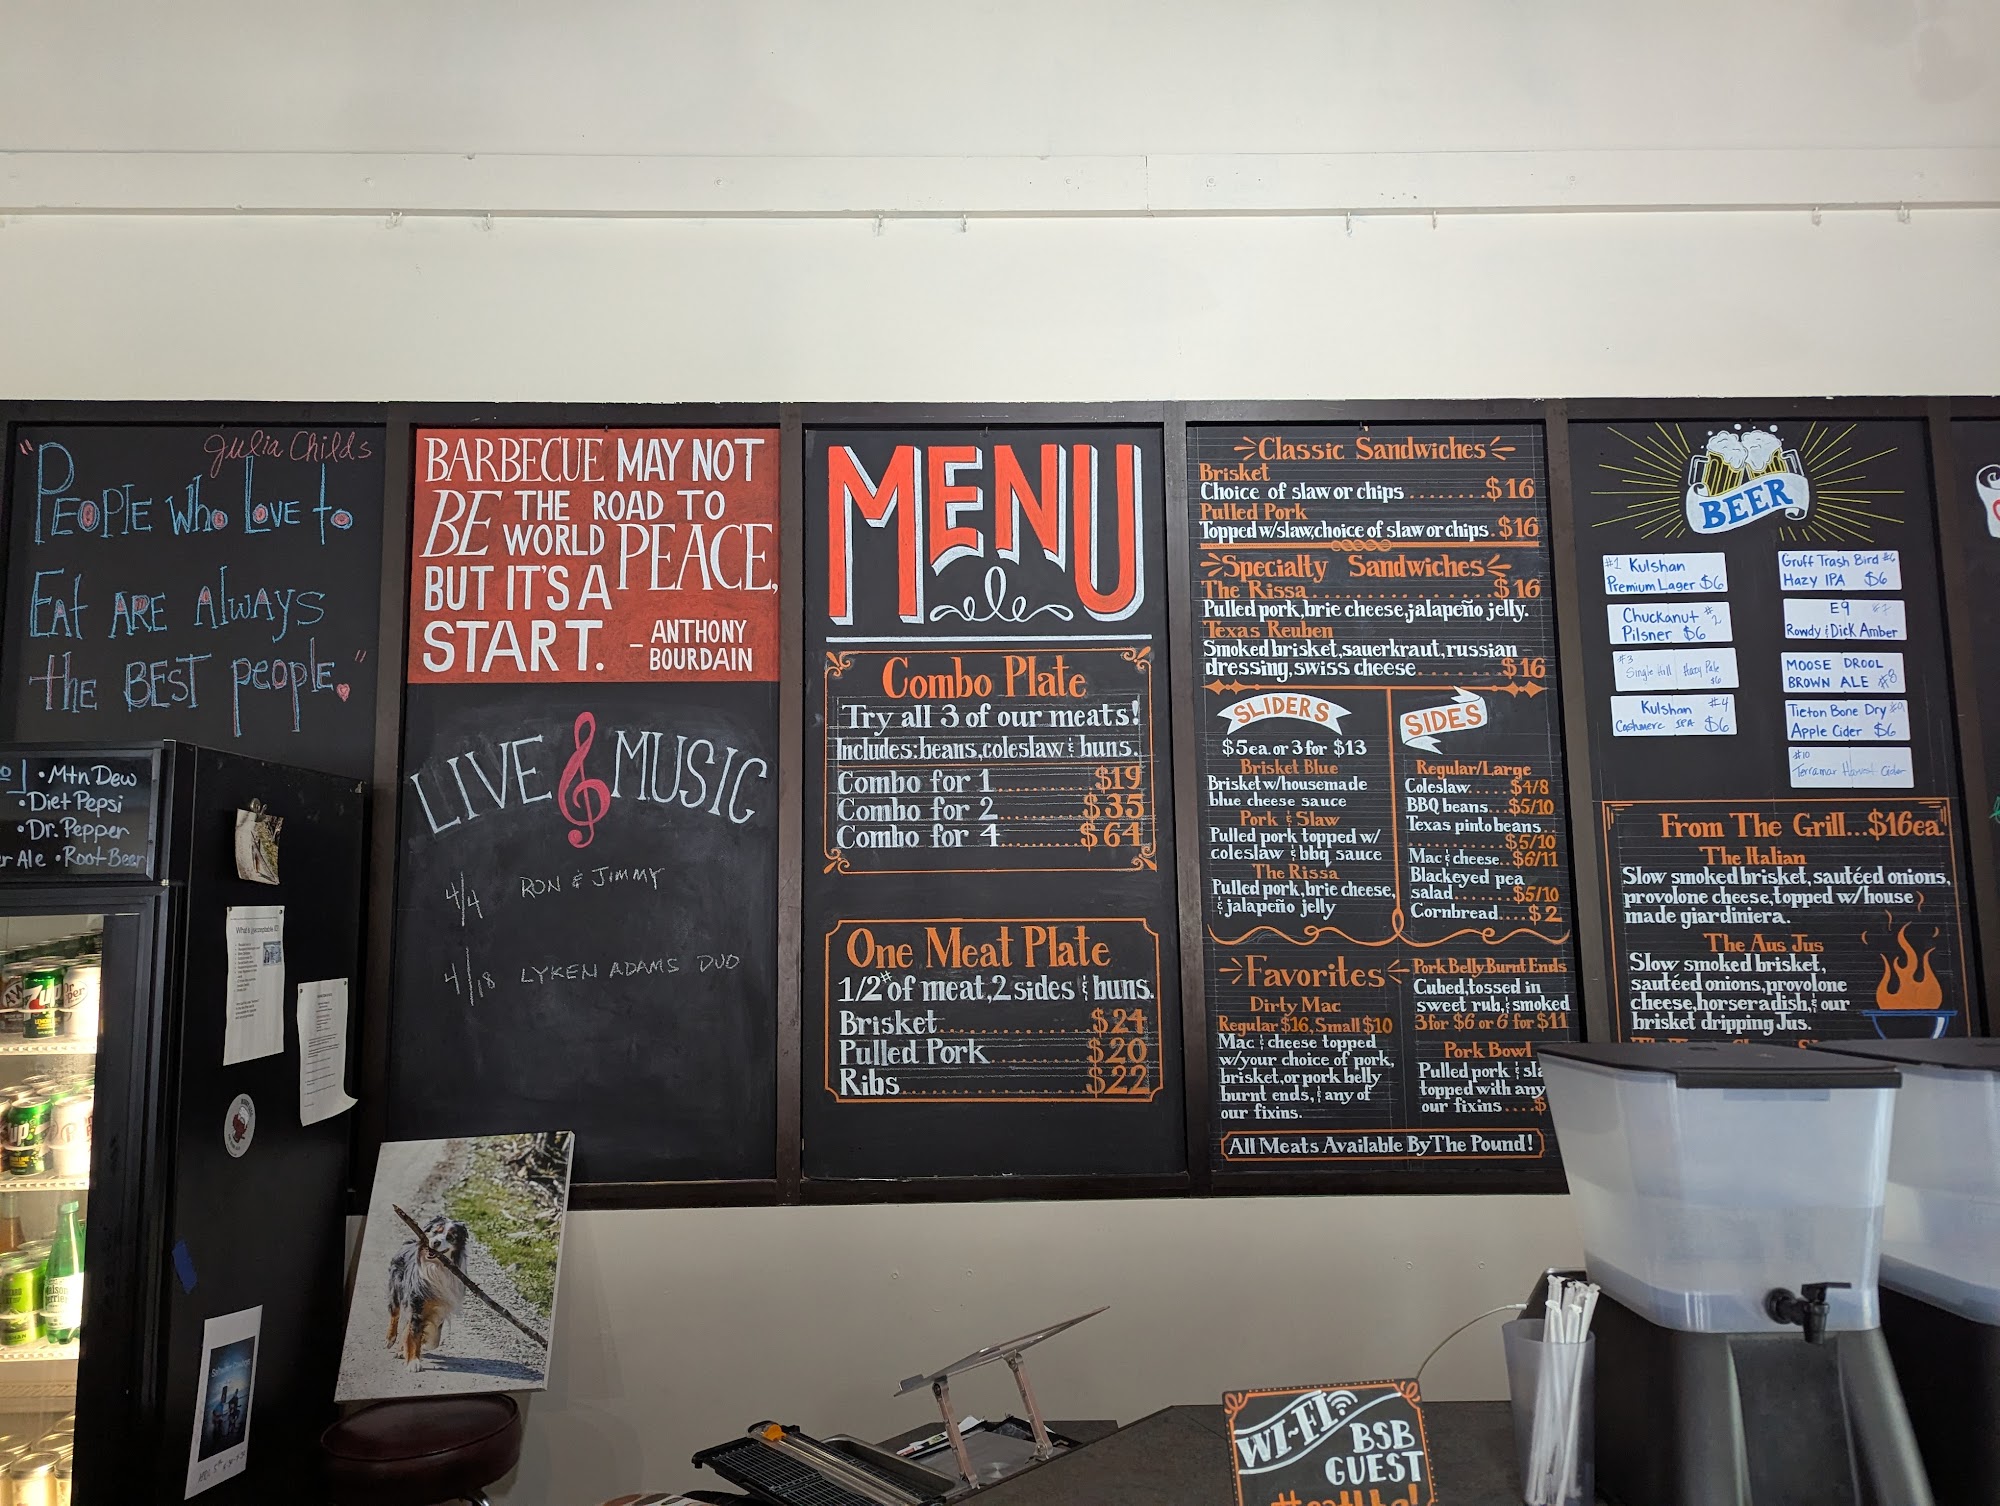 Julia Childs
"People who Love to
Eat are Always
the Best people."
• Mtn Dew
• Diet Pepsi
• Dr. Pepper
r Ale • Root Beer
BARBECUE MAY NOT
BE THE ROAD TO
WORLD PEACE,
BUT IT'S A
START.
- ANTHONY
BOURDAIN
LIVE MUSIC
4/4 RON & JIMMY
4/18 LYKEN ADAMS DUO
MENU
Combo Plate
Try all 3 of our meats!
Includes: beans, coleslaw & buns.
Combo for 1..........$19
Combo for 2..........$35
Combo for 4..........$64
One Meat Plate
1/2# of meat, 2 sides & buns.
Brisket...............$24
Pulled Pork..........$20
Ribs..................$22
Classic Sandwiches
Brisket
Choice of slaw or chips ........$16
Pulled Pork
Topped w/slaw, choice of slaw or chips. $16
Specialty Sandwiches
The Rissa....................$16
Pulled pork, brie cheese, jalapeño jelly.
Texas Reuben
Smoked brisket, sauerkraut, russian
dressing, swiss cheese.......$16
SLIDERS
$5ea. or 3 for $13
Brisket Blue
Brisket w/housemade
blue cheese sauce
Pork & Slaw
Pulled pork topped w/
coleslaw & bbq sauce
The Rissa
Pulled pork, brie cheese,
& jalapeño jelly
SIDES
Regular/Large
Coleslaw.....$4/8
BBQ beans...$5/10
Texas pinto beans..
............$5/10
Mac & cheese..$6/11
Blackeyed pea
salad........$5/10
Cornbread....$2
Favorites
Dirty Mac
Regular $16, Small $10
Mac & cheese topped
w/your choice of pork,
brisket, or pork belly
burnt ends, & any of
our fixins.
Pork Belly Burnt Ends
Cubed, tossed in
sweet rub, & smoked
3 for $6 or 6 for $11
Pork Bowl
Pulled pork & sla
topped with any
our fixins ....$
All Meats Available By The Pound!
BEER
#1 Kulshan
Premium Lager $6
Chuckanut #2
Pilsner $6
#3
Single Hill Hazy Pale
$6
Kulshan #4
Cashmere IPA $6
Gruff Trash Bird #6
Hazy IPA $6
E9 #7
Rowdy & Dick Amber
MOOSE DROOL
BROWN ALE #8
Tieton Bone Dry #9
Apple Cider $6
#10
Terramar Harvest Cider
From The Grill...$16ea.
The Italian
Slow smoked brisket, sautéed onions,
provolone cheese, topped w/house
made giardiniera.
The Aus Jus
Slow smoked brisket,
sautéed onions, provolone
cheese, horseradish, & our
brisket dripping Jus.
7up
WI-FI
BSB
GUEST